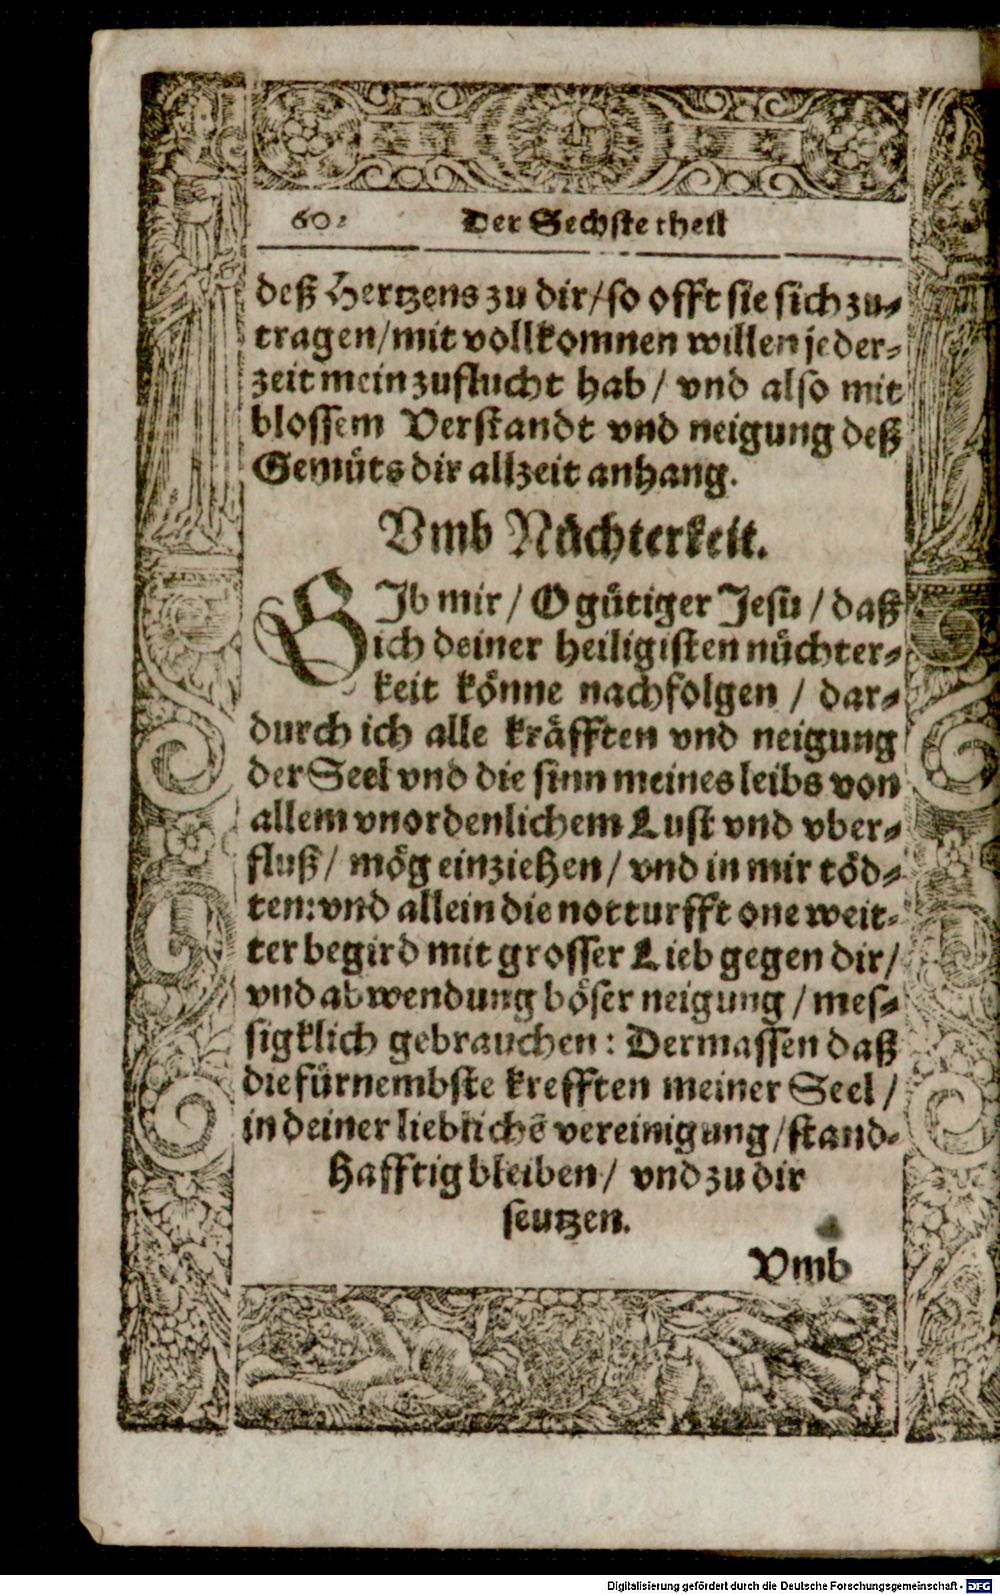 602 Der Sechste theil
deß Hertzens zu dir/so offt sie sich zu⸗
tragen/mit vollkomnen willen jeder⸗
zeit mein zuflucht hab/ vnd also mit
blossem Verstandt vnd neigung deß
Gemüts dir allzeit anhang.
Vmb Nüchterkeit.
GIb mir/ O gütiger Jesu/ daß
ich deiner heiligisten nüchter⸗
keit könne nachfolgen / dar⸗
durch ich alle kräfften vnd neigung
der Seel vnd die sinn meines leibs von
allem vnordenlichem Lust vnd vber⸗
fluß/ mög einziehen/ vnd in mir töd⸗
ten: vnd allein die notturfft one weit⸗
ter begird mit grosser Lieb gegen dir/
vnd abwendung böser neigung/mes⸗
sigklich gebrauchen: Dermassen daß
die fürnembste krefften meiner Seel/
in deiner lieblichē vereinigung/stand⸗
hafftig bleiben/ vnd zu dir
seutzen.
Vmb
Digitalisierung gefördert durch die Deutsche Forschungsgemeinschaft - DFG